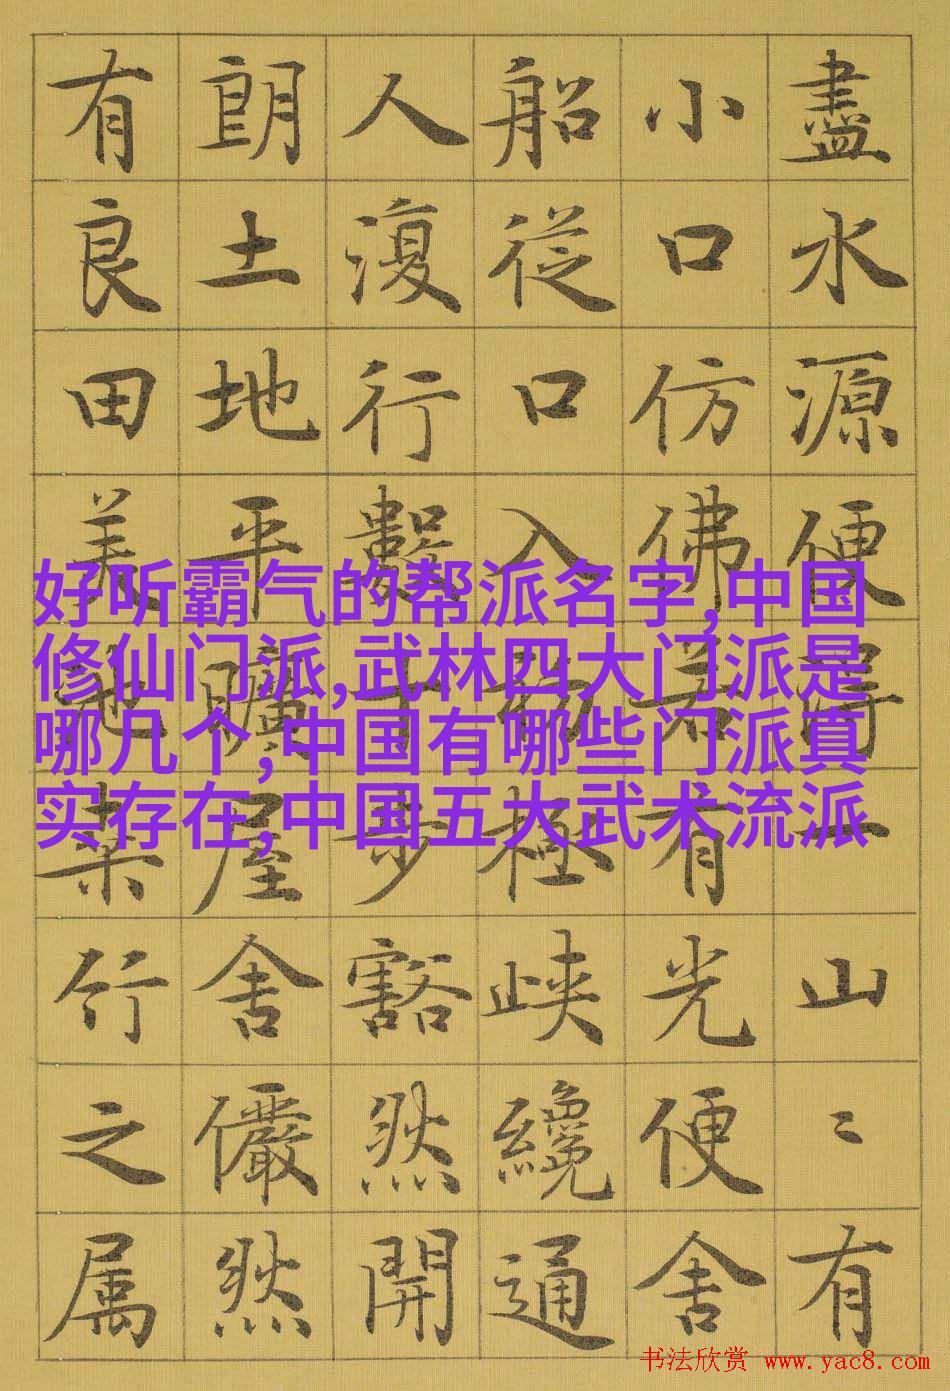 盡水源便得一山〻有
小口仿佛若有光便舍
船從口入初極峽纔通
人復行數十步豁然開
朗土地平曠屋舍儼然
有良田美池桑竹之属
好听霸气的帮派名字,中国
修仙门派,武林四大门派是
哪几个,中国有哪些门派真
实存在,中国五大武术流派
书法欣赏 www.yac8.com